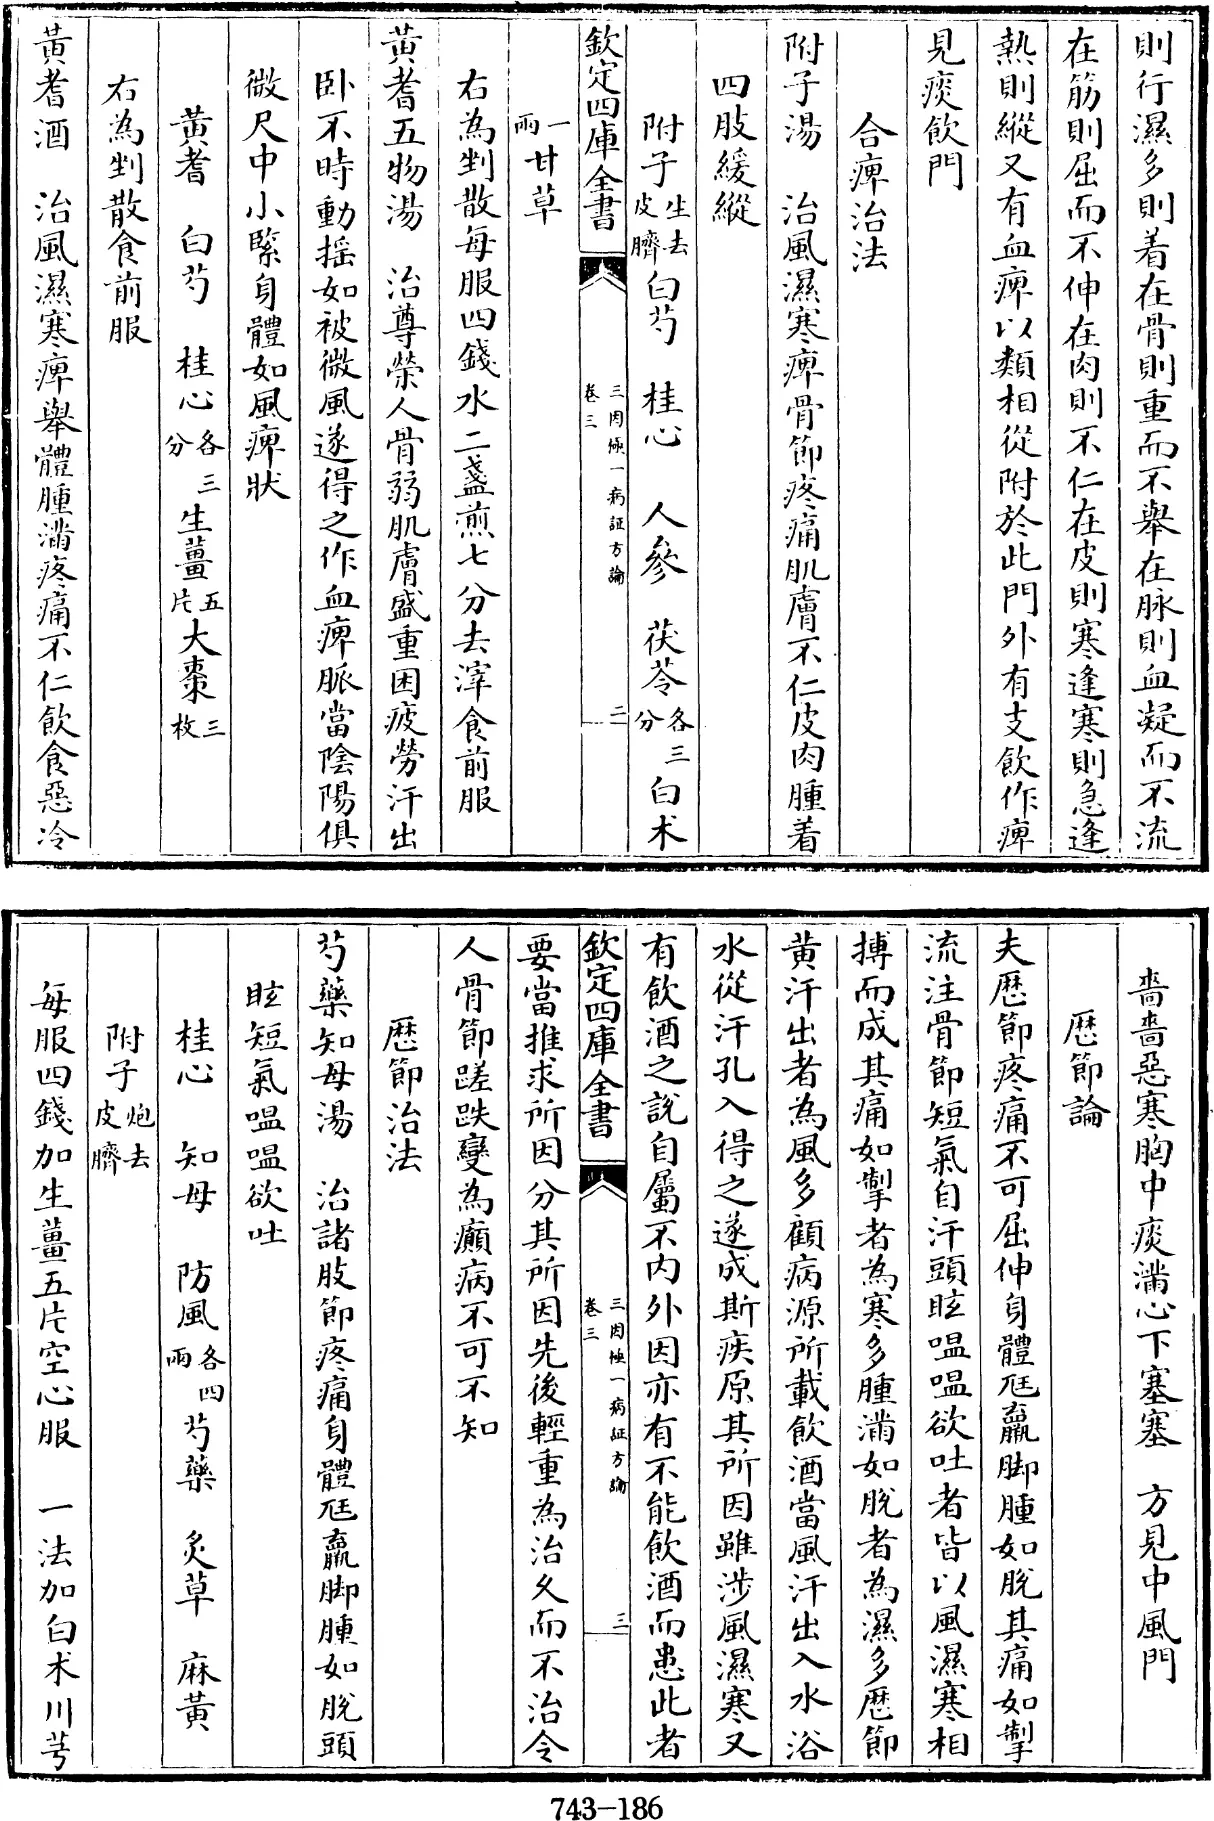 則行濕多則着在骨則重而不舉在脉則血凝而不流
在筋則屈而不伸在肉則不仁在皮則寒逢寒則急逢
熱則縱又有血痺以類相從附於此門外有支飲作痺
見痰飲門
合痺治法
附子湯 治風濕寒痺骨節疼痛肌膚不仁皮肉腫着
四肢緩縱
附子生去皮臍 白芍 桂心 人參 茯苓各三分 白术
欽定四庫全書 三因極一病証方論 卷三 二
一兩 甘草
右為剉散每服四錢水二盞煎七分去滓食前服
黃耆五物湯 治尊榮人骨弱肌膚盛重困疲勞汗出
卧不時動搖如被微風遂得之作血痺脈當陰陽俱
微尺中小緊身體如風痺狀
黃耆 白芍 桂心各三分 生薑五片 大棗三枚
右為剉散食前服
黃耆酒 治風濕寒痺舉體腫滿疼痛不仁飲食惡冷
嗇嗇惡寒胸中痰滿心下塞塞 方見中風門
歷節論
夫歷節疼痛不可屈伸身體尫羸脚腫如脫其痛如掣
流注骨節短氣自汗頭眩嗢嗢欲吐者皆以風濕寒相
搏而成其痛如掣者為寒多腫滿如脫者為濕多歷節
黃汗出者為風多顧病源所載飲酒當風汗出入水浴
水從汗孔入得之遂成斯疾原其所因雖涉風濕寒又
有飲酒之說自屬不內外因亦有不能飲酒而患此者
欽定四庫全書 三因極一病証方論 卷三 三
要當推求所因分其所因先後輕重為治久而不治令
人骨節蹉跌變為癲病不可不知
歷節治法
芍藥知母湯 治諸肢節疼痛身體尫羸脚腫如脫頭
眩短氣嗢嗢欲吐
桂心 知母 防風各四兩 芍藥 炙草 麻黃
附子炮去皮臍
每服四錢加生薑五片空心服 一法加白术川芎
743-186